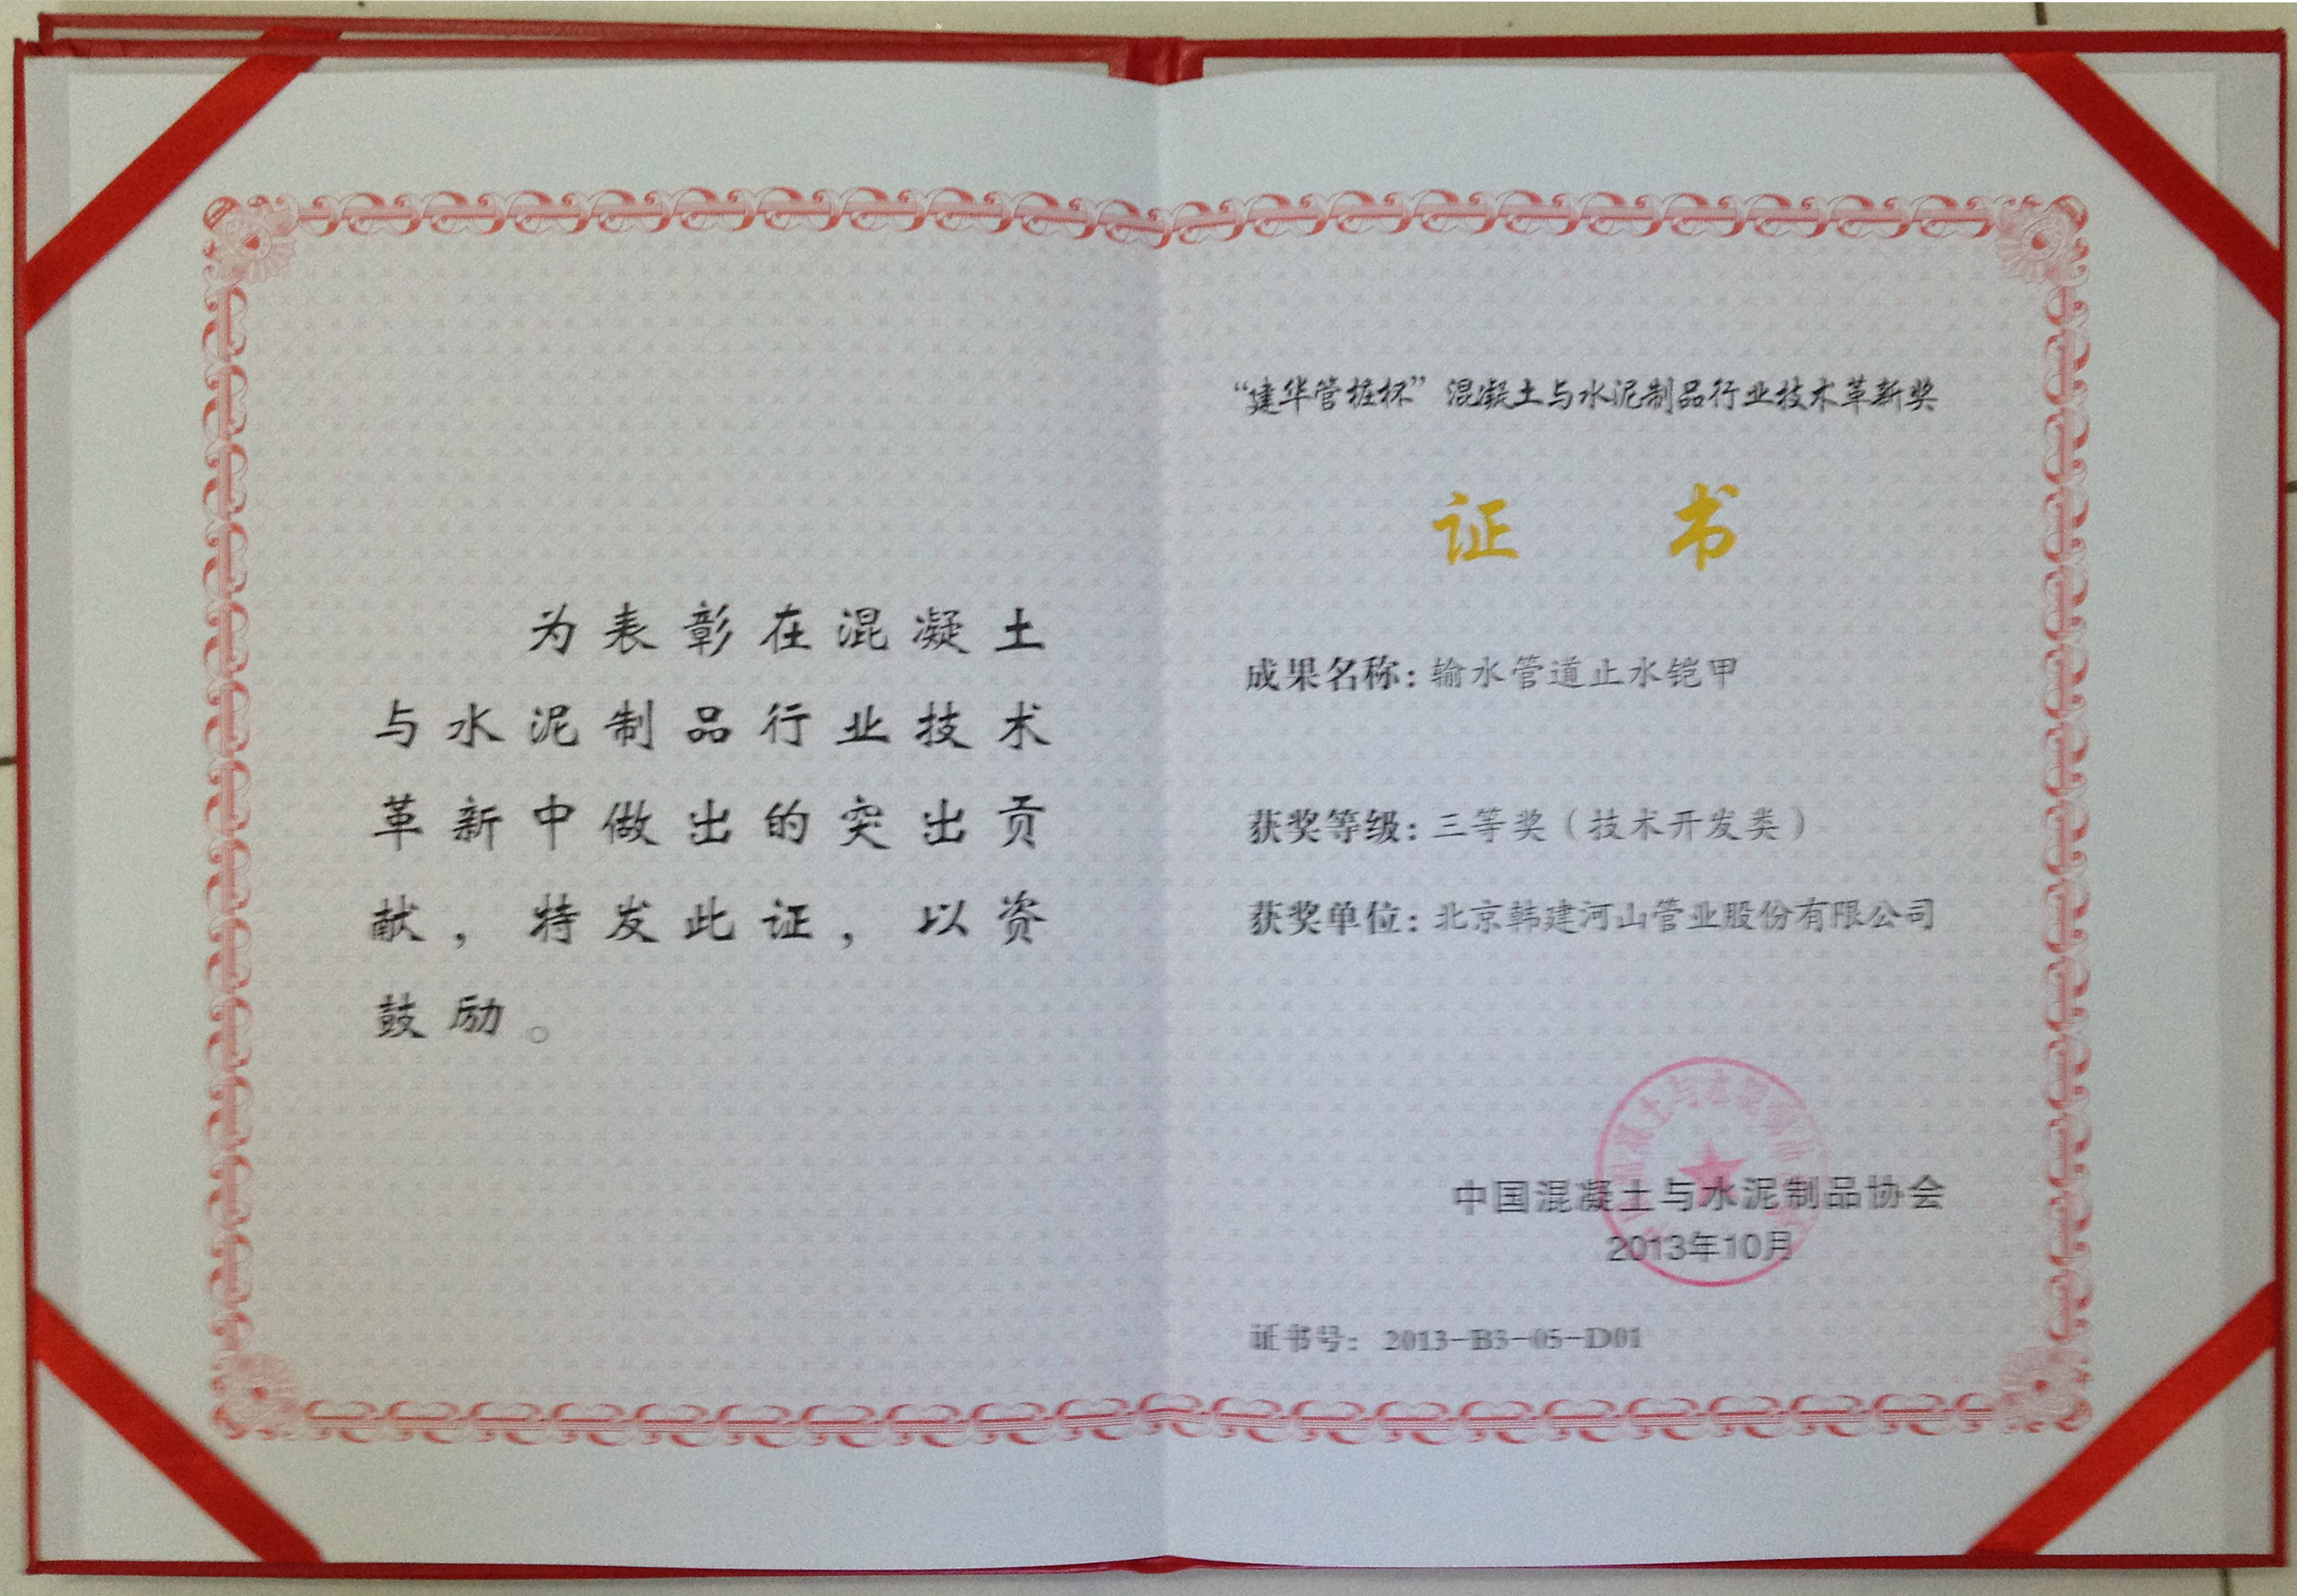 为表彰在混凝土
与水泥制品行业技术
革新中做出的突出贡
献，特发此证，以资
鼓励。
“建华管桩杯”混凝土与水泥制品行业技术革新奖
证书
成果名称：输水管道止水铠甲
获奖等级：三等奖（技术开发类）
获奖单位：北京韩建河山管业股份有限公司
中国混凝土与水泥制品协会
2013年10月
证书号：2013-B3-05-D01